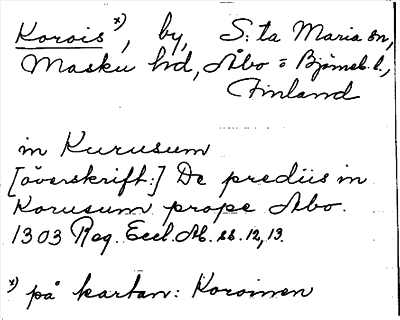 Korois x), by, S:ta Maria sn,
Masku hd, Åbo o Björneb. l.,
Finland
in Kurusum
[överskrift:] De prediis in
Korusum prope Abo.
1303 Reg. Eccl. Ab. ss. 12, 13.
x) på kartan: Koroinen